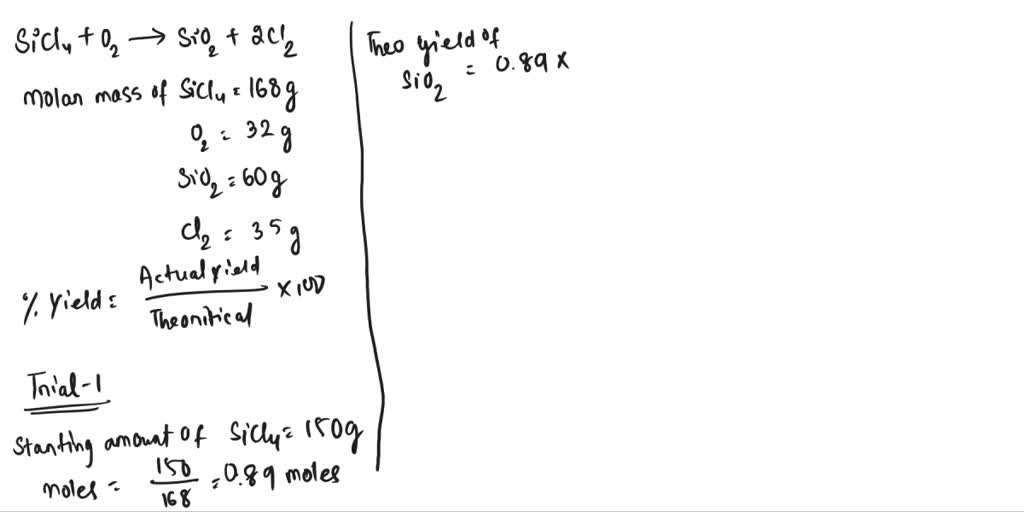 SiCl4 + O2 → SiO2 + 2Cl2
Molar mass of SiCl4 = 168g
O2 = 32g
SiO2 = 60g
Cl2 = 35g
% Yield = Actual yield / Theoritical × 100
Trial-1
Starting amount of SiCl4 = 150g
moles = 150/168 = 0.89 moles
Theo yield of
SiO2 = 0.89 ×